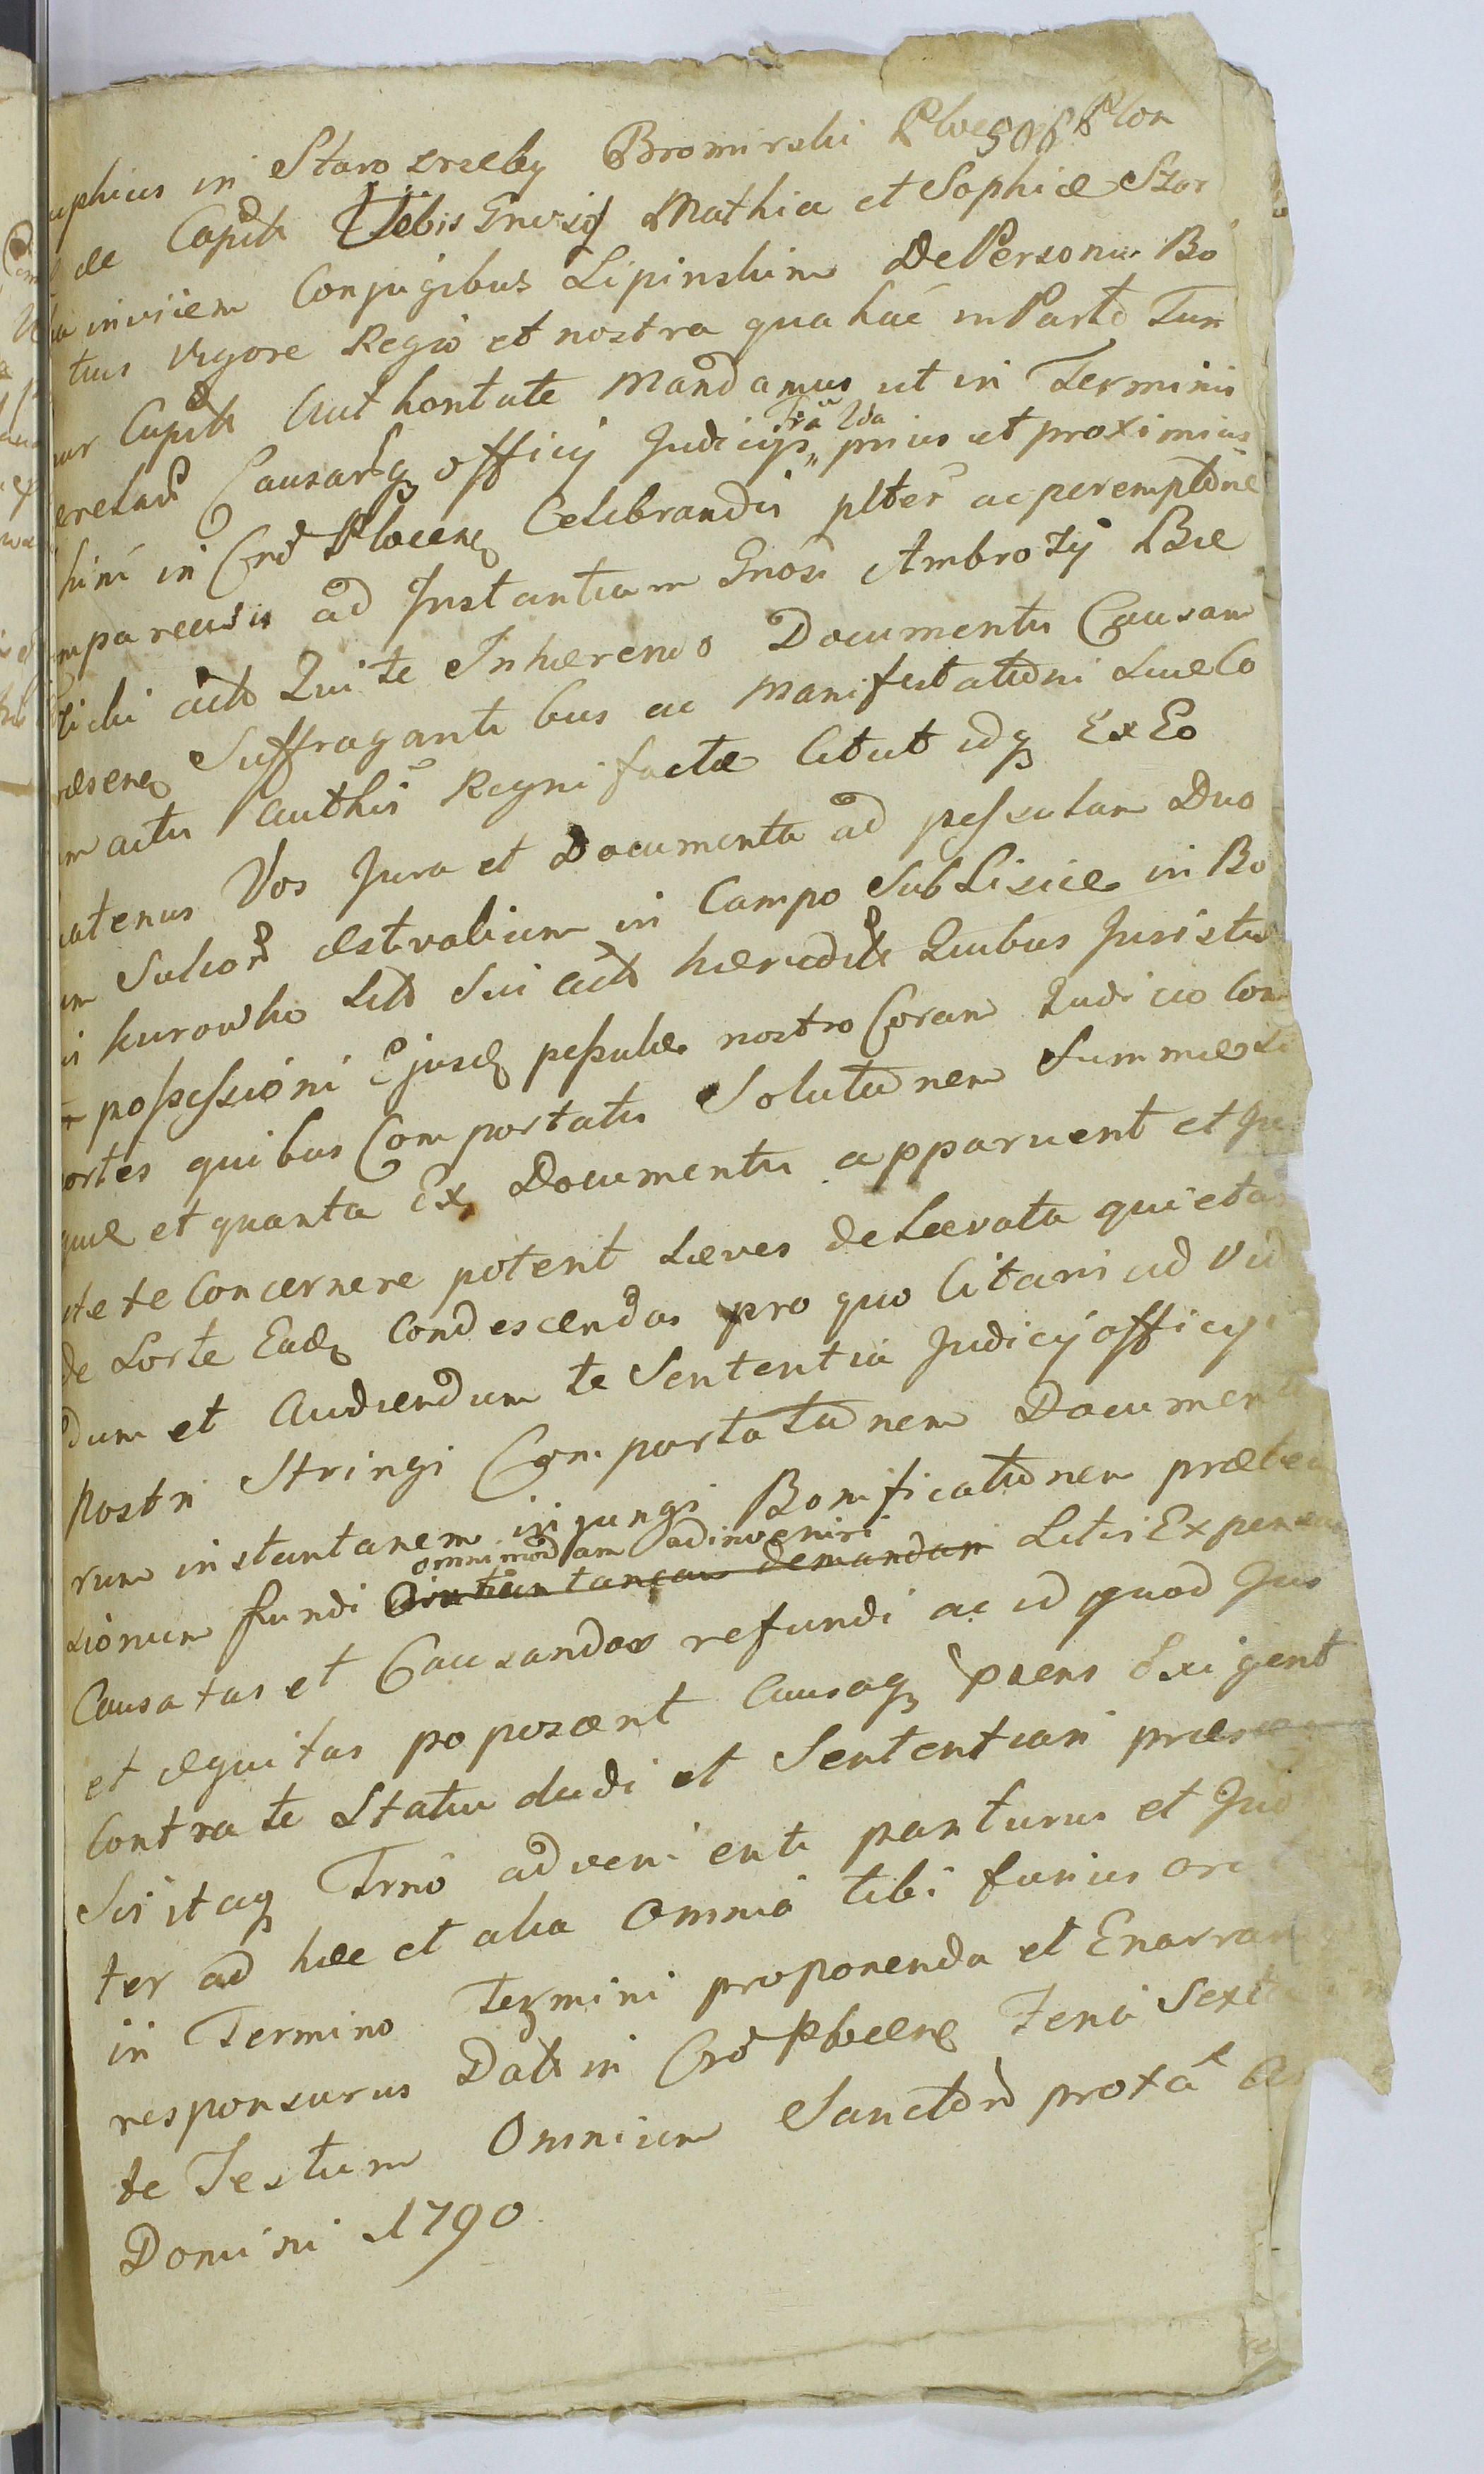 uphius in Staro Srzeby Bromirski Ploc
de Capitt Vobis Gnrosis Mathia et Sophiæ Szar
inviiem Conjugibus Lipinskim De Personis Bo
tuis Vigore Regio et nostra qua hac in Parte Fun
ur Capitt Authoritate Mandamus ut in Terminis
querelar Causarq officÿ Judicÿs prius et proximius
Fra 2da
hinc in Crd Plocens Celebrandis plter ac peremptorie
mpareatis ad Instantiam Gnosi Ambrozÿ Bie
lichi actt Qui te Inherendo Documentis Causam
ræsenq Suffraganti bus ac Manifestationi Suæ Co
m actis Authis Regni factæ Citat idq Ex Eo
uatenus Vos Jura et Documenta ad pessulam Duo
um Sulcor æstivalium in Campo Sub Lisice in Bo
is kurowko Litt Sui actt hæreditt Quibus Juristis
possessioni Ejusq pessulæ nostro Coram Judicio Com
ortes quibus Comportatis Solutionem Summæ
quæ et quanta Ex Documentis apparuerit et Ju
te te Concernere poterit Læves deLævata quietas
de Sorte Eadq Condescendas pro quo Citaris ad Vid
dum et Audiendum te Sententia Judicÿ officÿ
Nostri Stringi Comportationem Documen
rum instantanem injungi Bonificationem præten
omnimodam adinveniri
sionum fundi demandari Litis Expensas
Causatas et Causandas refundi ac id quod Jus
et æquitas poposcent Causaq præns Exigent
Contra te Statui dudi et Sententiari
Sis itaq Trno advenienti pariturus et Jud
ter ad hæc et alia Omnia tibi fusius
in Termino Termini proponenda et Enarran
responsurus Datt in Crd Plocens Feria Sexta
te Festum Omnium Sanctor proxa
Domini 1790